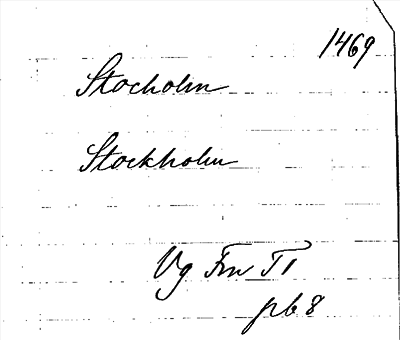 1469
Stocholm
Stockholm
Vg Fru T1
pb 8